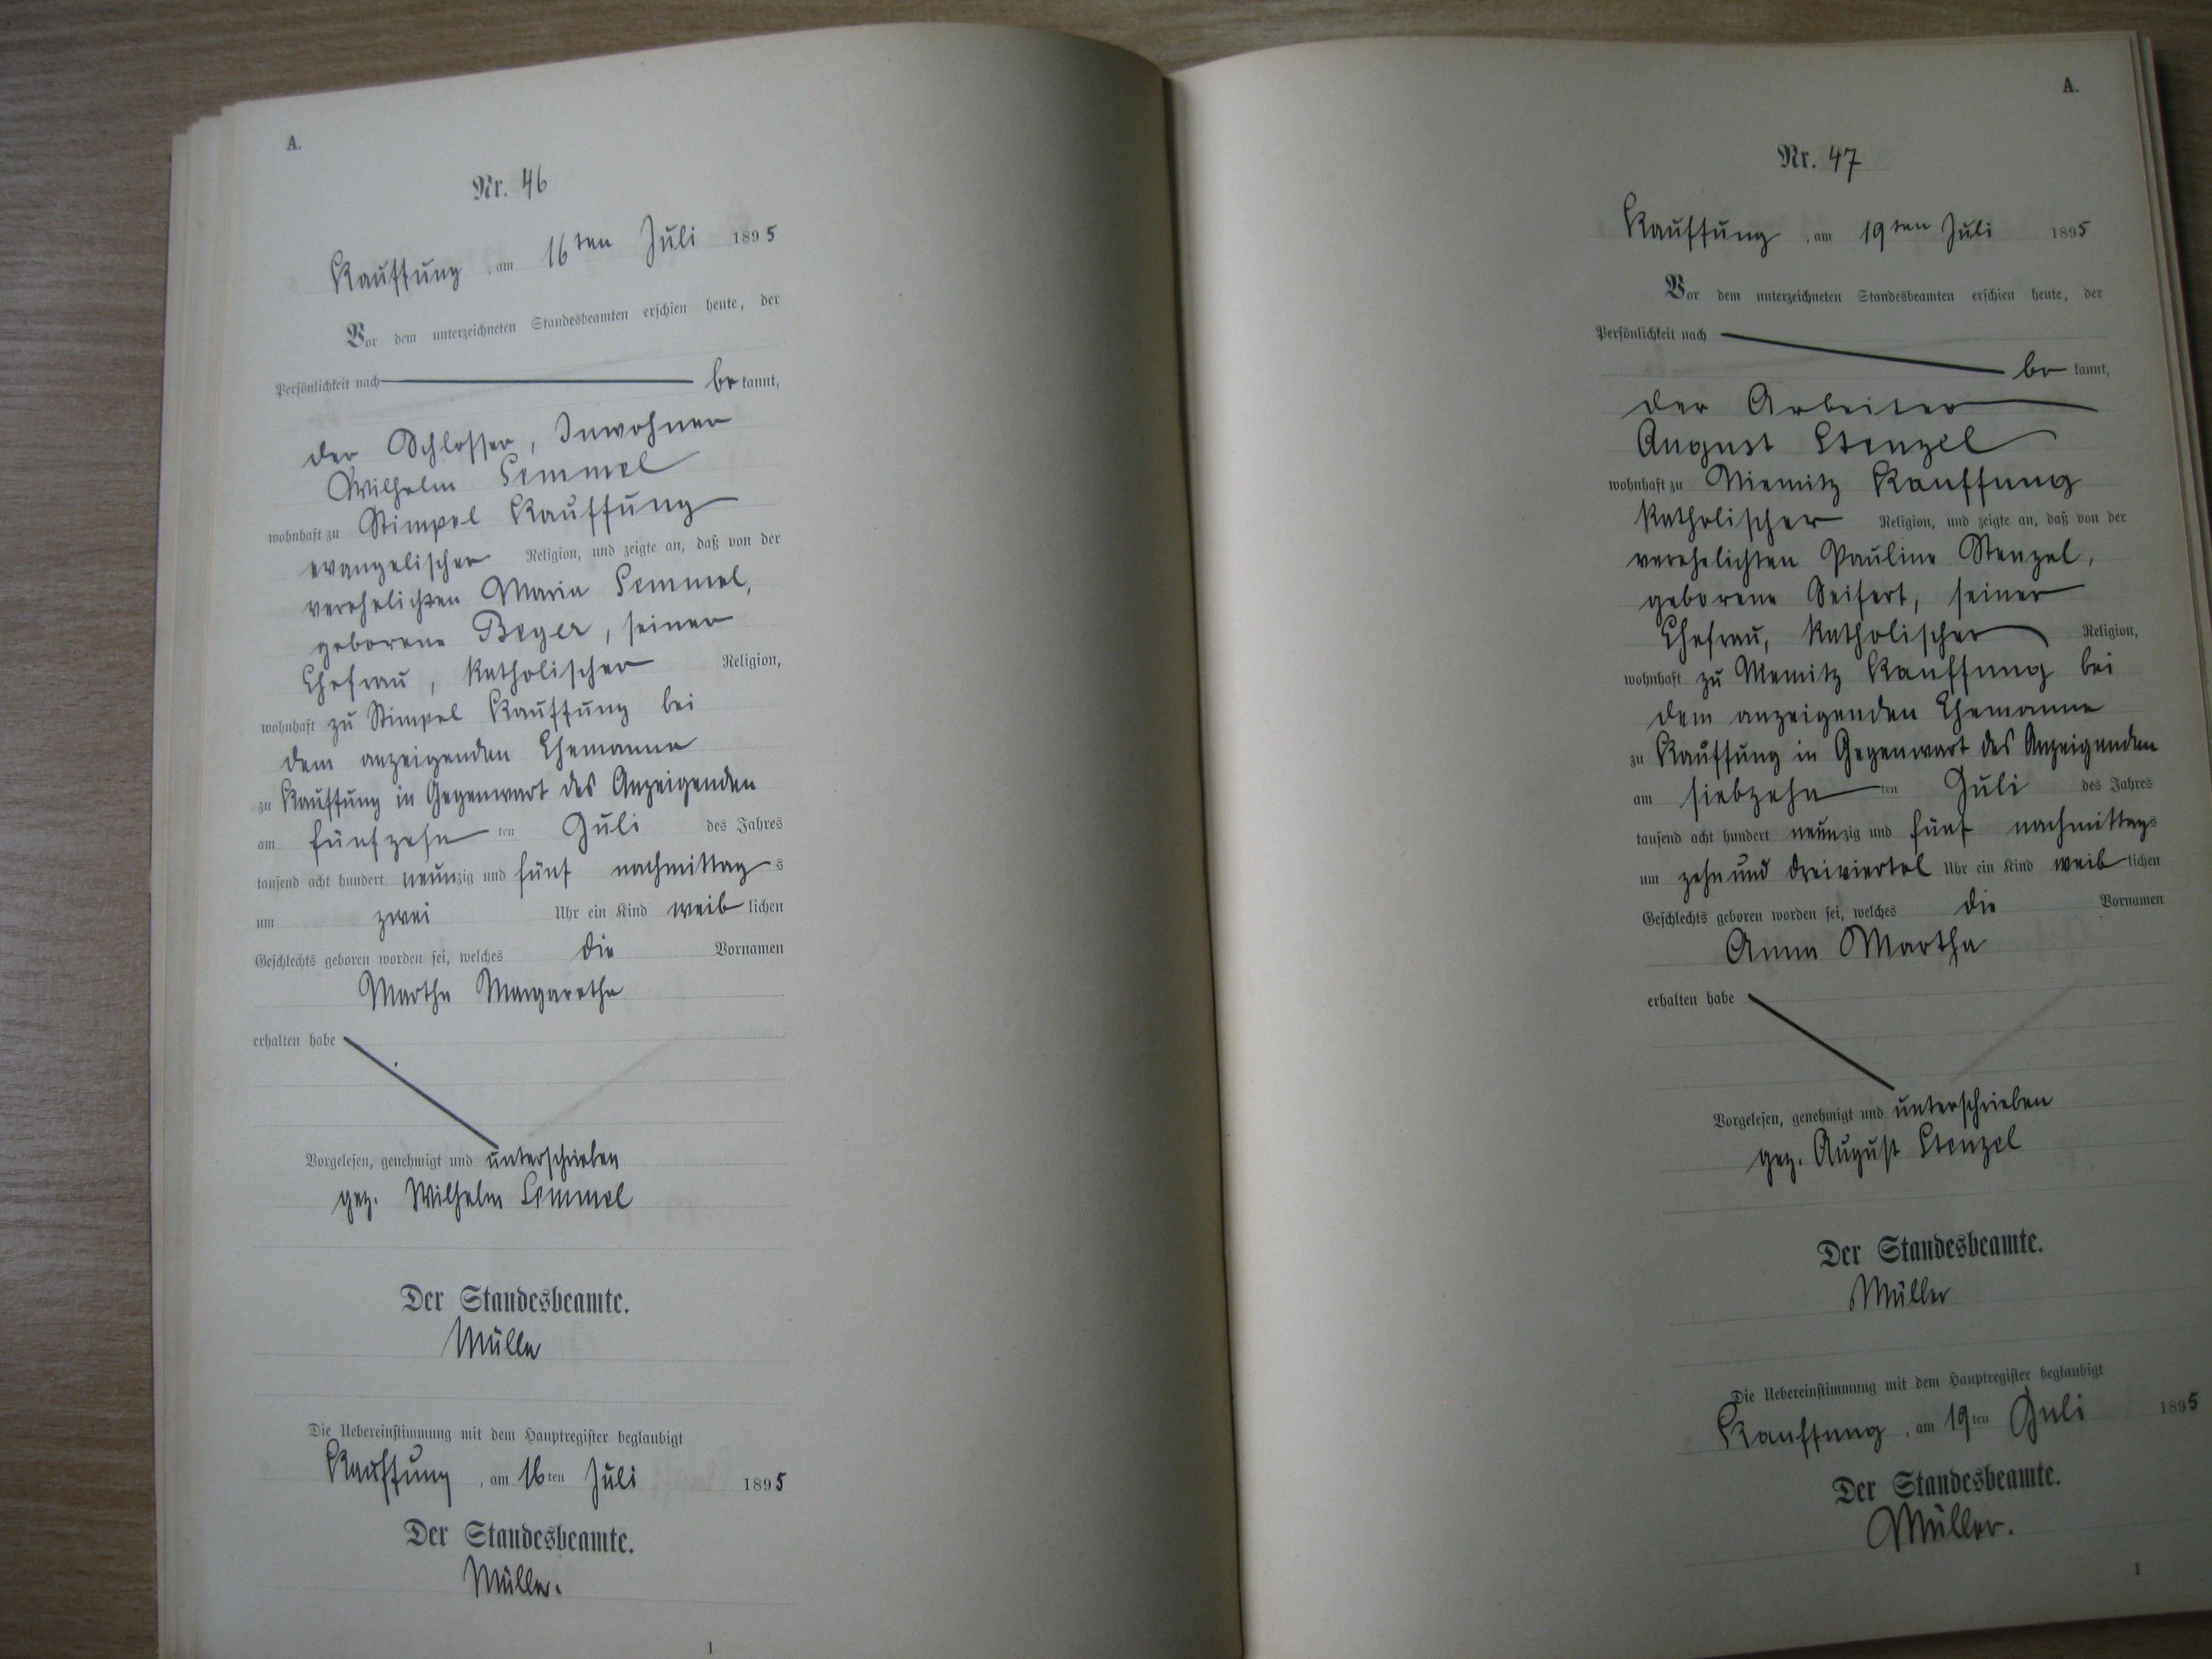 A.
Nr. 46
Kauffung, am 16ten Juli 1895
Vor dem unterzeichneten Standesbeamten erschien heute, der
Persönlichkeit nach be kannt,
der Schlosser, Inwohner
Wilhelm Semmel
wohnhaft zu Stimpel Kauffung
evangelischer Religion, und zeigte an, daß von der
verehelichten Maria Semmel,
geborene Beyer, seiner
Ehefrau, katholischer Religion,
wohnhaft zu Stimpel Kauffung bei
dem anzeigenden Ehemanne
zu Kauffung in Gegenwart des Anzeigenden
am fünfzehn ten Juli des Jahres
tausend acht hundert neunzig und fünf nachmittag s
um zwei Uhr ein Kind weib lichen
Geschlechts geboren worden sei, welches die Vornamen
Martha Margaretha
erhalten habe
Vorgelesen, genehmigt und unterschrieben
gez. Wilhelm Semmel
Der Standesbeamte.
Müller
Die Uebereinstimmung mit dem Hauptregister beglaubigt
Kauffung, am 16ten Juli 1895
Der Standesbeamte.
Müller.
1
A.
Nr. 47
Kauffung, am 19ten Juli 1895
Vor dem unterzeichneten Standesbeamten erschien heute, der
Persönlichkeit nach be kannt,
der Arbeiter
August Stenzel
wohnhaft zu Niemitz Kauffung
katholischer Religion, und zeigte an, daß von der
verehelichten Pauline Stenzel,
geborene Seifert, seiner
Ehefrau, katholischer Religion,
wohnhaft zu Niemitz Kauffung bei
dem anzeigenden Ehemanne
zu Kauffung in Gegenwart des Anzeigenden
am siebzehn ten Juli des Jahres
tausend acht hundert neunzig und fünf nachmittags
um zehn und dreiviertel Uhr ein Kind weib lichen
Geschlechts geboren worden sei, welches die Vornamen
Anna Martha
erhalten habe
Vorgelesen, genehmigt und unterschrieben
gez. August Stenzel
Der Standesbeamte.
Müller
Die Uebereinstimmung mit dem Hauptregister beglaubigt
Kauffung, am 19ten Juli 1895
Der Standesbeamte.
Müller.
1